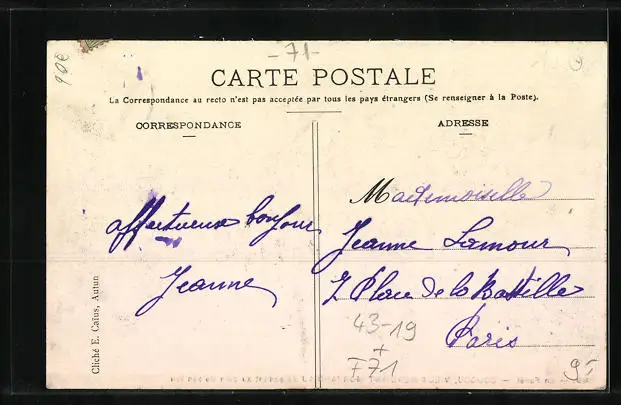 90e
- 71 -
CARTE POSTALE
La Correspondance au recto n'est pas acceptée par tous les pays étrangers (Se renseigner à la Poste).
CORRESPONDANCE
ADRESSE
affectueux bonjour
Jeanne
Mademoiselle
Jeanne Lamour
7 Place de la Bastille
Paris
43-19
+
F71
Cliché E. Caïus, Autun